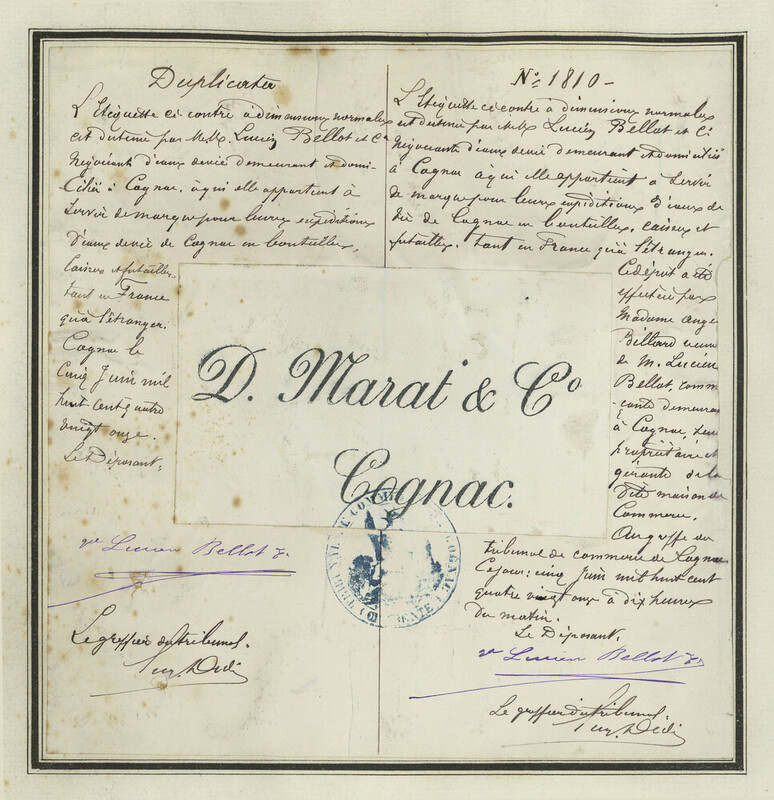 Duplicata
L'Etiquette ci contre à dimensions normales
est destinée par MM. Lucien Bellot et Cie
négociants d'eaux de vie demeurant et domi-
ciliés à Cognac, à qui elle appartient à
servir de marque pour leurs expéditions
d'eaux de vie de Cognac en bouteilles,
caisses et futailles,
tant en France
qu'à l'étranger.
Cognac le
Cinq Juin mil
huit cent quatre
vingt onze.
Le Déposant,
ve Lucien Bellot &
Le greffier du tribunal.
No. 1810 -
L'Etiquette ci contre à dimensions normales
est destinée par MM. Lucien Bellot et Cie
négociants d'eaux de vie demeurant et domiciliés
à Cognac à qui elle appartient à servir
de marque pour leurs expéditions d'eaux de
vie de Cognac en bouteilles, caisses et
futailles, tant en France qu'à l'étranger.
Ce dépôt a été
effectué par
Madame Ange
Billard veuve
de M. Lucien
Bellot, comm
-çante demeurant
à Cognac, seule
propriétaire et
gérante de la
dite maison de
Commerce.
Au greffe du
tribunal de commerce de Cognac
Ce jour: cinq Juin mil huit cent
quatre vingt onze à dix heures
du matin.
Le Déposant,
ve Lucien Bellot &
Le greffier du tribunal.
D. Marat & Co
Cognac.
TRIBUNAL DE COMMERCE DE COGNAC (CHARENTE)